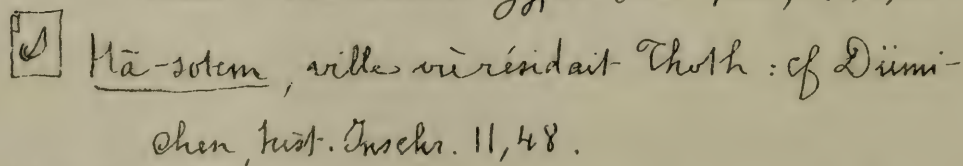 Hā-sotem, ville où résidait Thoth : cf Dümi-
chen, hist. Inschr. 11, 48.